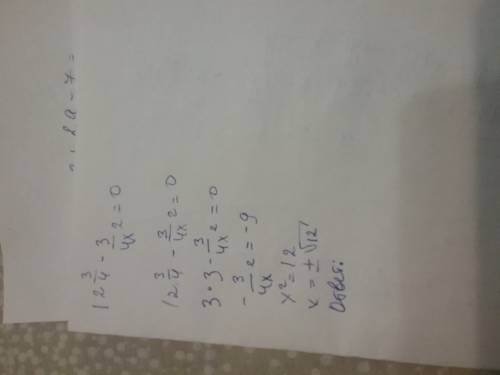 2a - 7 =
12 3/4 - 3/4x 2 = 0
12 3/4 - 3/4x 2 = 0
3 • 3 - 3/4x 2 = 0
- 3/4x 2 = -9
x² = 12
x = ±√12
Ответ: